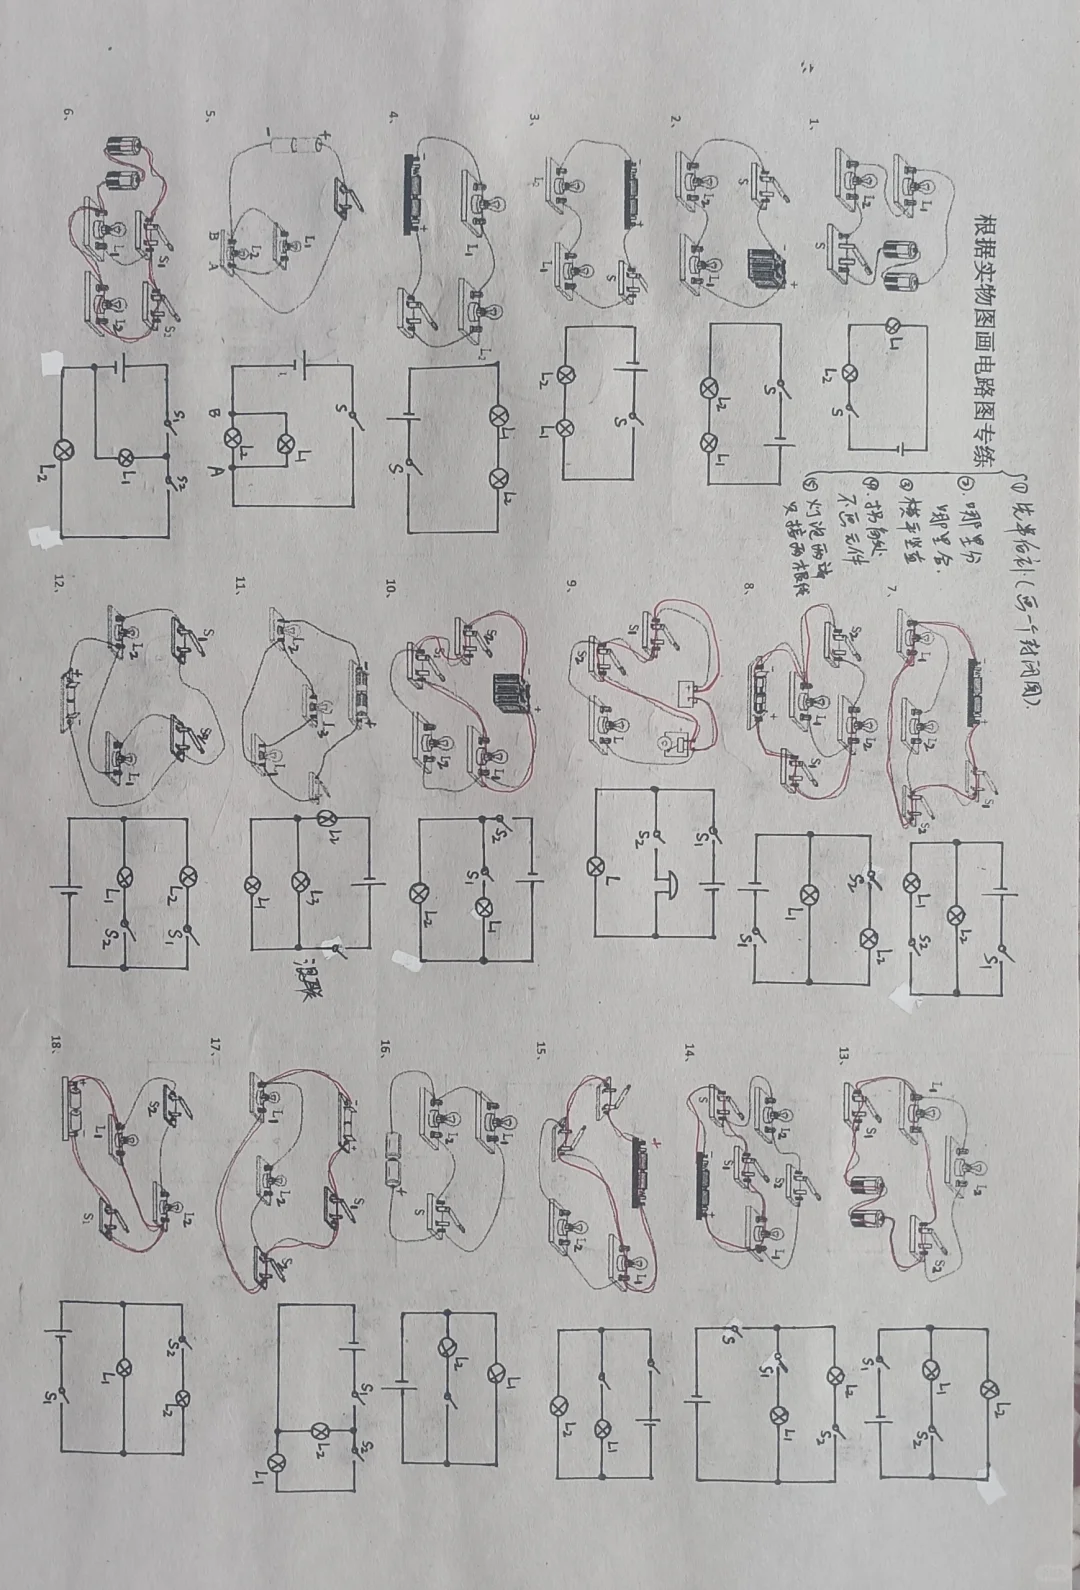 根据实物图画电路图专练
①先串后补(画一个封闭圈).
②.哪里分
哪里合.
③横平竖直
④.拐角处
不画元件
⑤灯泡两端
只接两根线
1、
L1
L2
S
L1
L2
S
2、
S
L2
L1
S
L2
L1
3、
L2
L1
S
S
L2
L1
4、
L1
L2
L1
L2
S
5、
L1
L2
B
A
S
L1
L2
B
A
6、
S1
S2
L1
L2
S1
S2
L1
L2
7、
L1
L2
S1
S2
S1
L2
L1
S2
8、
S2
L1
L2
S1
S2
L2
L1
S1
9、
S1
S2
L
S1
S2
L
10、
S2
S1
L1
L2
S2
S1
L1
L2
11、
L2
L3
L1
L2
L3
L1
混联
12、
S1
L2
S2
L1
L2
S1
L1
S2
13、
L1
L2
S1
S2
L2
L1
S2
S1
14、
S
L2
S1
S2
L1
L2
S2
S1
L1
S
15、
L2
L1
L1
L2
16、
L1
L2
S
L1
L2
17、
L1
L2
S1
S2
S1
S2
L2
L1
18、
S2
L1
L2
S1
S2
L2
L1
S1